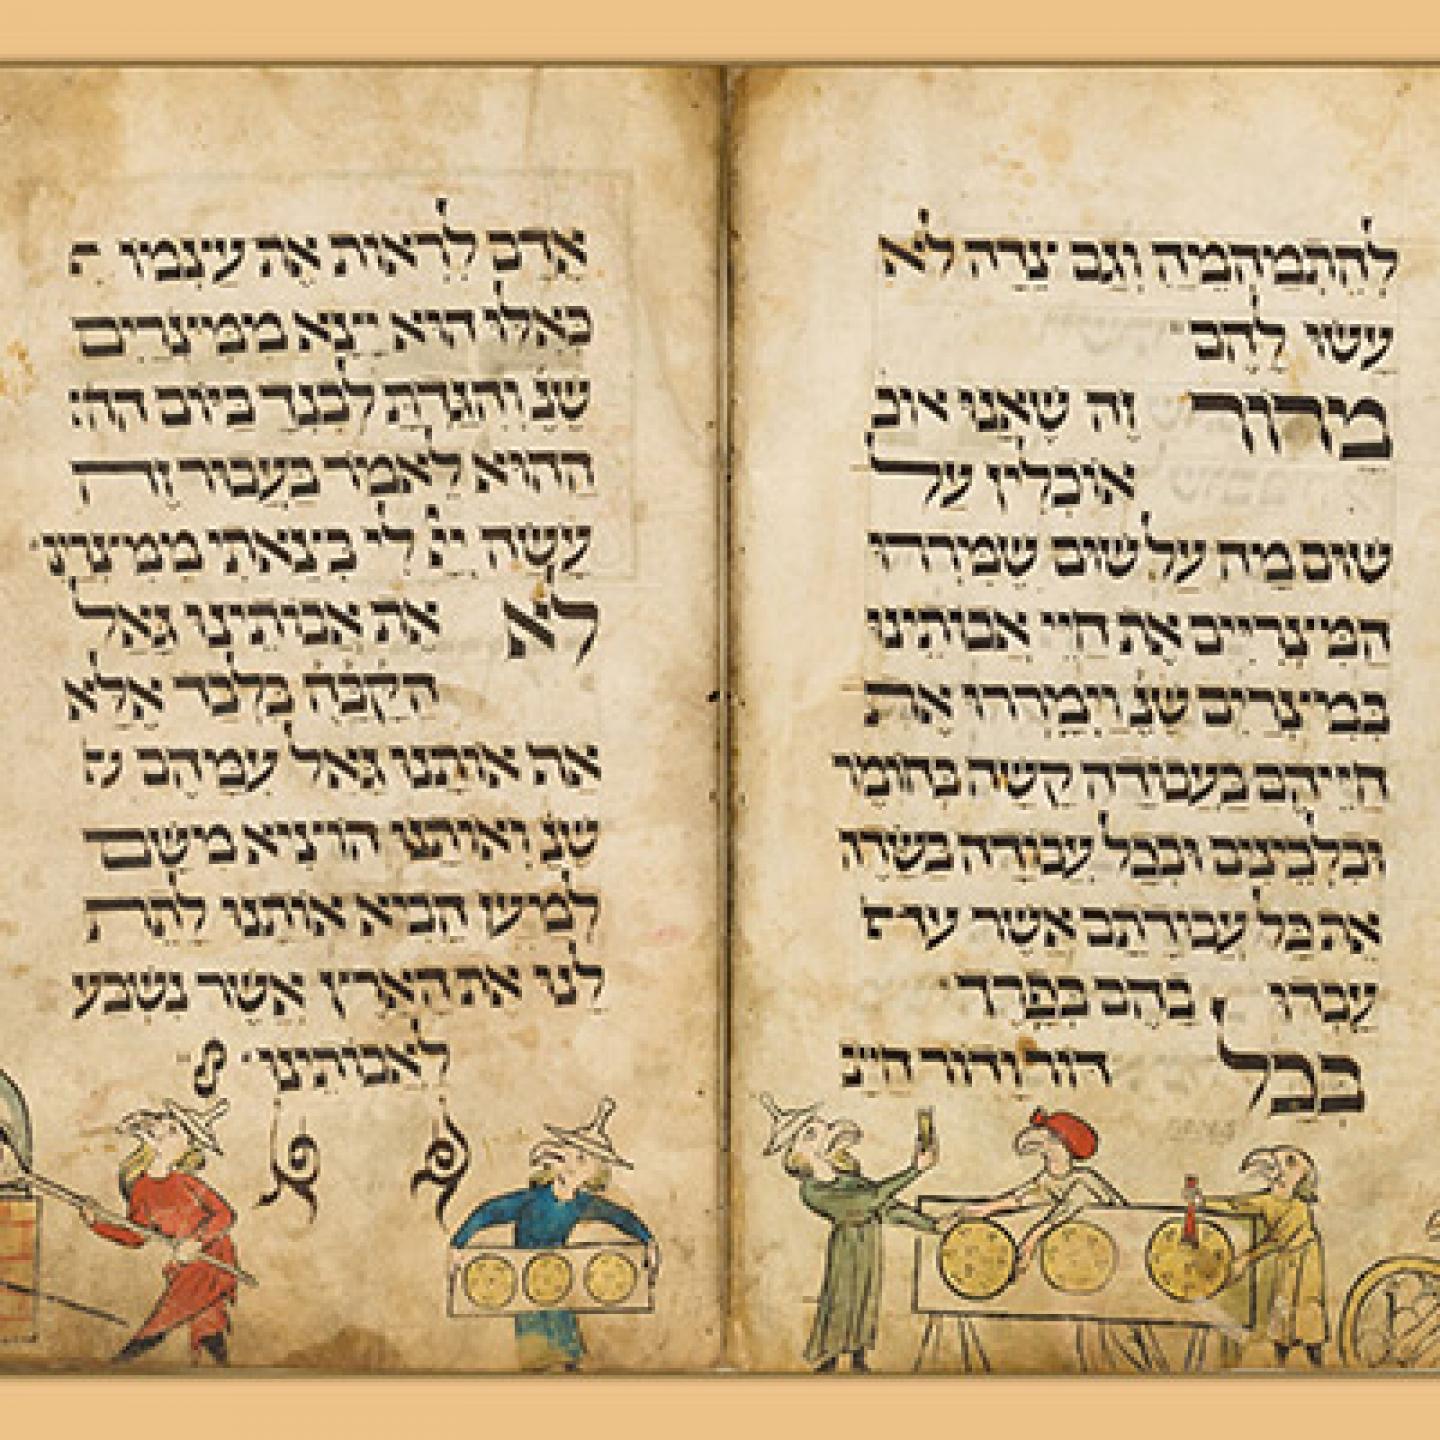 להתמהמה וגם צדה לא
עשו להם
מרור זה שאנו אוכ
אוכלין על
שום מה על שום שמררו
המצריים את חיי אבותינו
במצרים שנ וימררו את
חייהם בעבודה קשה בחומר
ובלבינים ובכל עבודה בשדה
את כל עבודתם אשר
עבדו בהם בפרך
בכל דור ודור חייב
אדם לראות את עצמו
כאלו הוא יצא ממצרים
שנ והגדת לבנך ביום הה
ההוא לאמר בעבור זה
עשה יי לי בצאתי ממצרי
לא את אבותינו גאל
הקבה בלבד אלא
את אותנו גאל עמהם
שנ ואותנו הוציא משם
למען הביא אותנו לתת
לנו את הארץ אשר נשבע
לאבותינו